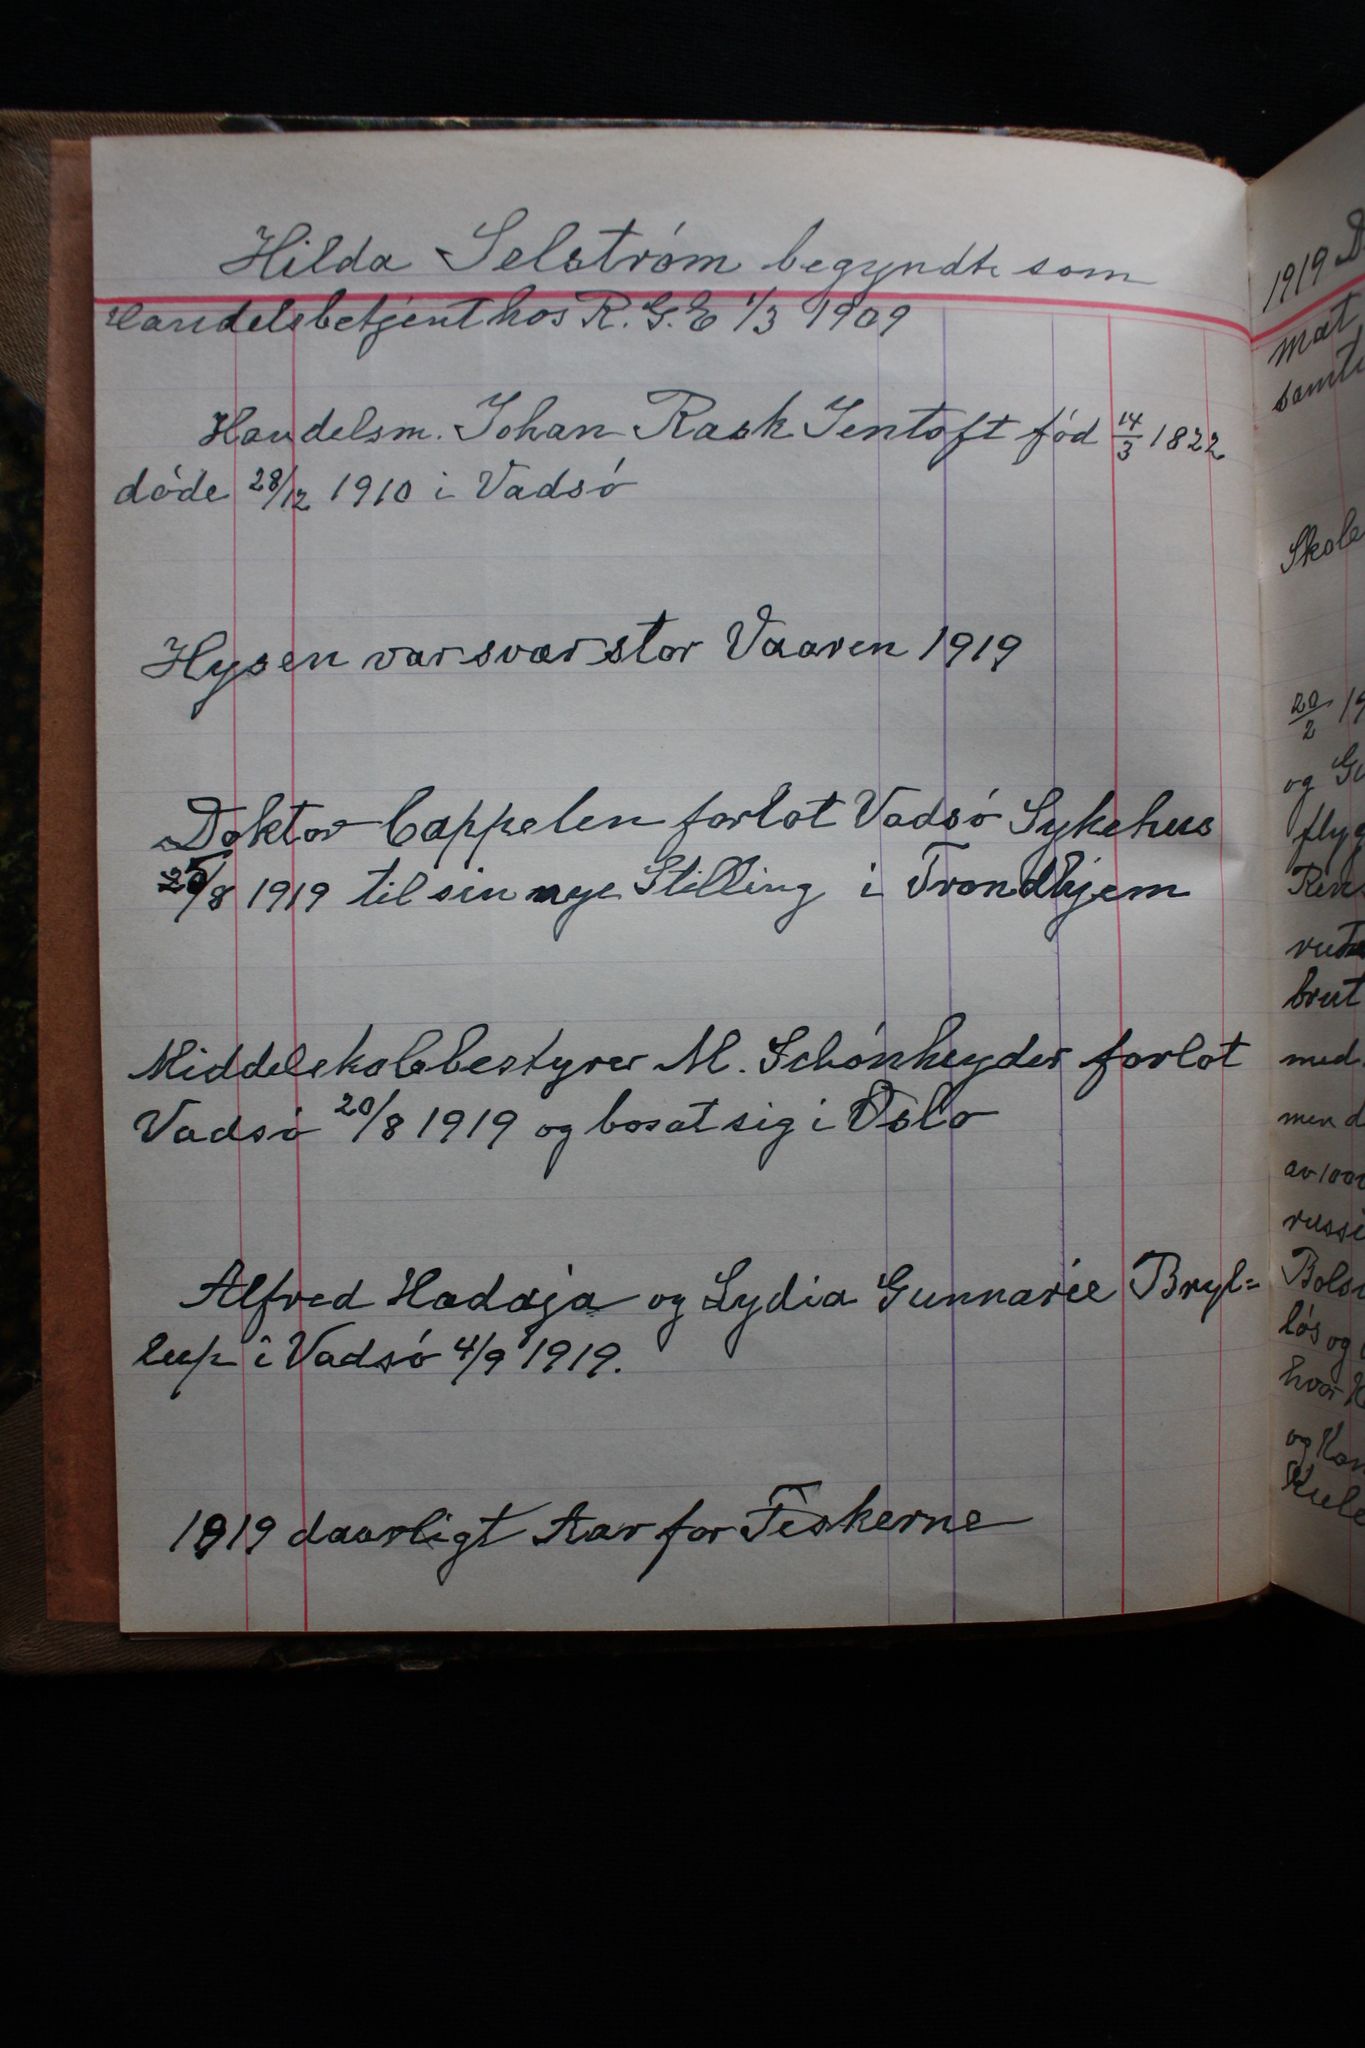 Hilda Selström begyndte som
Handelsbetjent hos R. G. E 1/3 1909
Handelsm. Johan Rask Jentoft fød 14/3 1822
døde 28/12 1910 i Vadsö
Hysen var svær stor Vaaren 1919
Doktor Cappelen forlot Vadsö Sykehus
25/8 1919 til sin nye Stilling i Trondhjem
Middelskolebestyrer M. Schönheyder forlot
Vadsö 20/8 1919 og bosat sig i Oslo
Alfred Hadaja og Lydia Gunnarie Bryl=
lup i Vadsö 4/9 1919.
1919 daarligt Aar for Fiskerne
1919 D
mat
samti
Skole
20/2 19
og
flyg
brut
med
men d
av 100
russi
Bols
løs og
hvor
og Kan